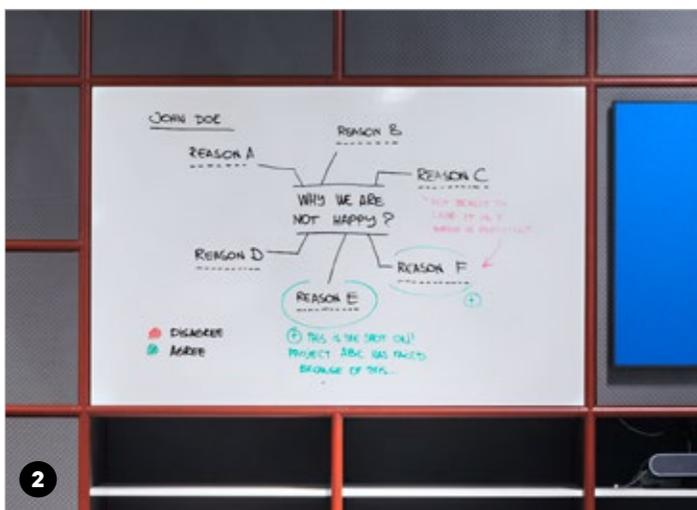 JOHN DOE
REASON B
REASON A
REASON C
WHY WE ARE
NOT HAPPY?
REASON D
REASON F
REASON E
DISAGREE
AGREE
+ THIS IS THE SPOT ON!
PROJECT ABC HAS FAILED
BECAUSE OF THIS...
+
2